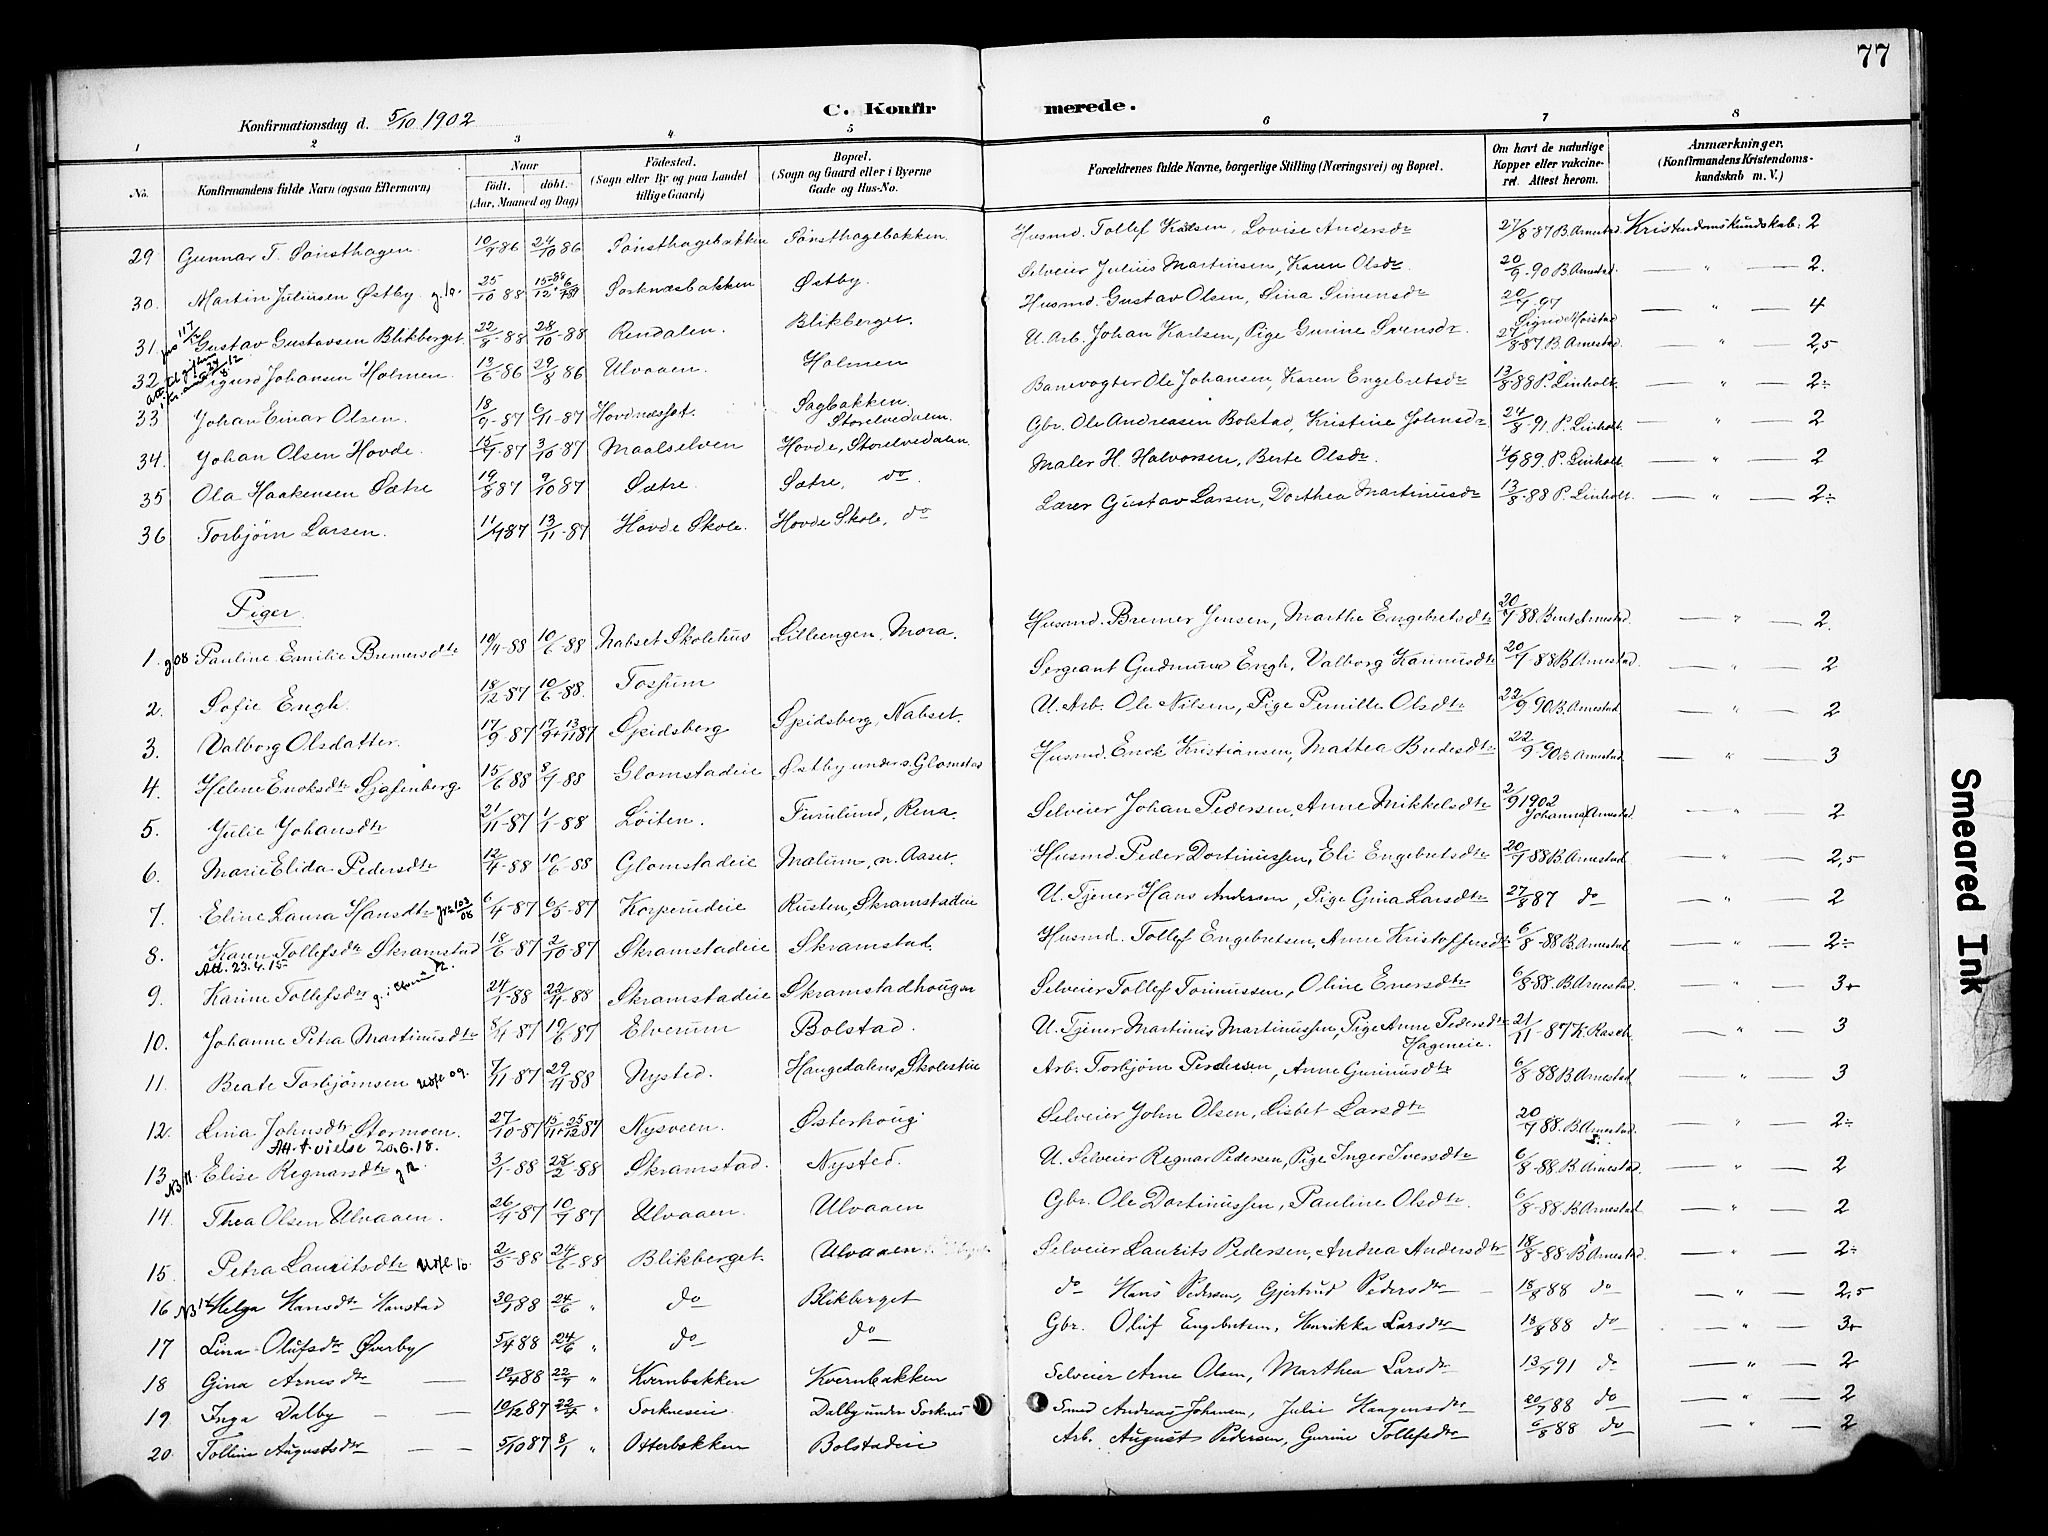 77
C. Konfirmerede.
Konfirmationsdag d. 5/10 1902
1 2 3 4 5 6 7 8
No. Konfirmandens fulde Navn (ogsaa Efternavn) Naar født. døbt. (Aar, Maaned og Dag) Fødested. (Sogn eller By og paa Landet tillige Gaard) Bopæl. (Sogn og Gaard eller i Byerne Gade og Hus-No. Forældrenes fulde Navne, borgerlige Stilling (Næringsvei) og Bopæl. Om havt de naturlige Kopper eller vakcineret. Attest herom. Anmærkninger. (Konfirmandens Kristendomskundskab m. V.)
29 Gunnar T. Sønsthagen. 10/9 86 24/10 86 Sønsthagebakken Sønsthagebakken. Husmd. Tollef Karlsen, Lovise Andersdtr 27/8 87 B. Arnestad Kristendomskundskab: 2
30. Martin Juliusen Østby 25/10 88 Sorknæsbakken Østby. Selveier Julius Martinsen, Karen Olsdtr. 20/9 90 B. Arnestad. — " — 2.
31. Gustav Gustavsen Blikberget 22/9-88 28/10-88 Rendalen. Blikberget. Husmd. Gustav Olsen, Lina Simensdtr 20/9 97 Sigurd Moistad — " — 4
32 Sigurd Johansen Holmen. 13/6-86 29/8 86 Ulvaaen. Holmen U. Arb. Johan Karlsen, Pige Gurine Svensdtr. 27/8-87 B. Arnestad. — " — 2,5
33 Johan Einar Olsen. 18/9-87 6/11-87 Hovdnæsset. Sagbakken. Storelvedalen. Banevogter Ole Johansen, Karen Engebretsdtr 13/8 88 P. Linholt. — " — 2÷
34. Johan Olsen Hovde. 15/7-87 3/10-87 Maalselven Hovde, Storelvedalen Gbr. Ole Andreasen Bolstad, Kristine Johnsdtr 24/8-91 P. Linholt. — " — 2
35 Ola Haakensen Sætre 19/8 87 9/10 87 Sætre. Sætre, do. Maler H. Halvorsen, Berte Olsdtr. 4/9 89. P. Linholt. — " — 2
36 Torbjørn Larsen. 11/9 87 13/11-87 Hovde Skole. Hovde Skole, do Lærer Gustav Larsen, Dorthea Martinusdtr 13/8-88 P. Linholt. — " — 2÷
Piger.
1. g 08 Pauline Emilie Bremersdtr 19/4-88 10/6-88 Nabset Skolehus Lilleengen, Mora. Husmd. Bremer Jensen, Marthe Engebretsdtr 20/7 88. Bent Arnestad — " — 2.
2. Sofie Engh. 18/12-87 10/6-88. Tossum Sergeant Gudmund Engh, Valborg Karinusdtr 20/7 88 B. Arnestad. — " — 2
3. Valborg Olsdatter. 17/9-87 17/9+13/11 87 Spidsberg Spidsberg, Nabset. U. Arb. Ole Nilsen, Pige Pernille Olsdtr 22/9 90 B. Arnestad — " — 2
4. Helene Enoksdtr Sjøfenberg 15/6 88 8/7-88 Glomstadeie Østby under Glomstad Husmd. Enok Kristiansen, Mathea Bredesdtr 22/9 90 B. Arnestad — " — 3
5. Julie Johansdtr 21/11-87 1/1-88 Løiten. Furulund, Rena. Selveier Johan Pedersen, Anne Mikkelsdtr 2/9 1902 Johannes Arnestad. — " — 2
6. Marie Elida Pedersdtr 12/4-88 10/6-88 Glomstadeie Malum, n. Aaset. Husmd. Peder Dortinussen, Eli Engebretsdtr 20/7 88 B. Arnestad — " — 2,5
7. Eline Laura Hansdtr 6/4-87 6/5-87 Korpenieie Rusten, Skramstadeie U. Tjener Hans Andersen, Pige Gina Larsdtr 27/8 87 do — " — 2
8. Karen Tollefsdtr Skramstad 18/6-87 2/10-87 Skramstadeie Skramstad. Husmd. Tollef Engebretsen, Anne Kristoffersdtr 6/8-88 B. Arnestad — " — 2÷
Att. 23.4.15
9. Karine Tollefsdtr 24/1-88 22/4-88 Skramstadeie Skramstadhougen Selveier Tollef Torinussen, Oline Enersdtr 6/8 88. B. Arnestad. — " — 3+
10. Johanne Petra Martinusdtr 8/4-87 19/6 87 Elverum Bolstad. U. Tjener Martinus Martinussen, Pige Anne Pedersdtr Hageneie. 21/11-87 K. Rasch — " — 3
11. Beate Torbjørnsen Udfl 09. 7/11-87 29/4-88 Nysted. Haugedalens Skolestue Arb. Torbjørn Pedersen, Anne Gunnusdtr 6/8 88 B. Arnestad — " — 3
12. Lina Johnsdtr Stormoen. 27/10-87 15/11+25/12 87 Nysveen. Østerhoug Selveier John Olsen, Lisbet Larsdtr 20/7 88. B. Arnestad. — " — 2÷
Att. t. vielse 20.6.18.
13 Elise Regnarsdtr g 12. 3/1-88 28/2-88 Skramstad. Nysted. U. Selveier Regnar Pedersen, Pige Inger Iversdtr 6/8-88 B. Arnestad. — " — 2
14. Thea Olsen Ulvaaen. 26/4-87 10/7 87 Ulvaaen. Ulvaaen Gbr. Ole Dortinussen, Pauline Olsdtr. 6/8-88. B. Arnestad. — " — 2
15. Petra Lauritsdtr Udfl 10. 2/5-88 24/6-88 Blikberget. Ulvaaen Selveier Laurits Pedersen, Andrea Andersdtr 18/8-88. B. Arnestad. — " — 2÷
16 Helga Hansdtr Hanstad 30/1 88 24/6 " do Blikberget do Hans Pedersen, Gjertrud Pedersdtr — 18/8 88 do — " — 2,5
17 Lina Olufsdtr Øverby 5/4 88 24/6 " do do Gbr. Oluf Engebretsen, Henrikka Larsdtr 13/8 88 do — " — 3+
18 Gina Arnesdtr — 19/4 88 22/7 " Kvernbakken Kvernbakken Selveier Arne Olsen, Marthea Larsdtr 13/7 91 do — " — 2
19. Inga Dalby — — 10/12 87 22/4 " Sorknesseie Dalby under Sorknes Smed Andreas Johnsen, Julie Haagensdtr 20/7 88 do — " — 2
20. Tolline Augustsdtr — — 5/10 87 8/1 " Otterbakken Bolstadeie Arb. August Pedersen, Gurine Tollefsdtr 6/8 88 do — " — 2
Smeared Ink